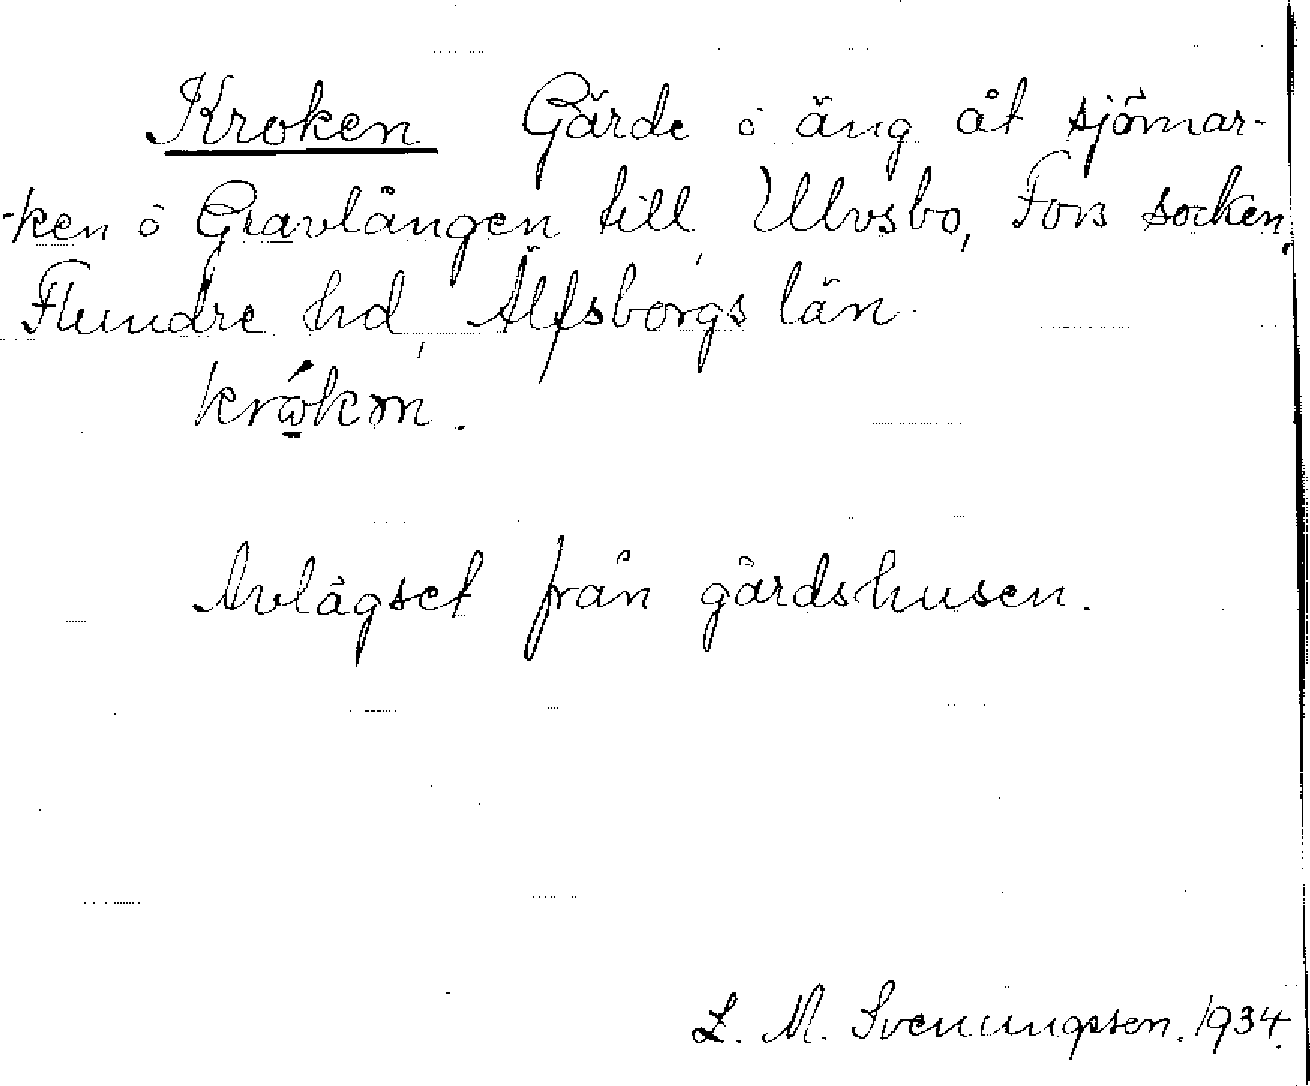 Kroken Gärde ö äng åt sjömar-
-ken ö Gravlången till Ulvsbo, Fors socken,
Flundre hd, Älfsborgs län.
krωkɷn.
Avlägset från gårdshusen.
L. M. Svenungsson. 1934.